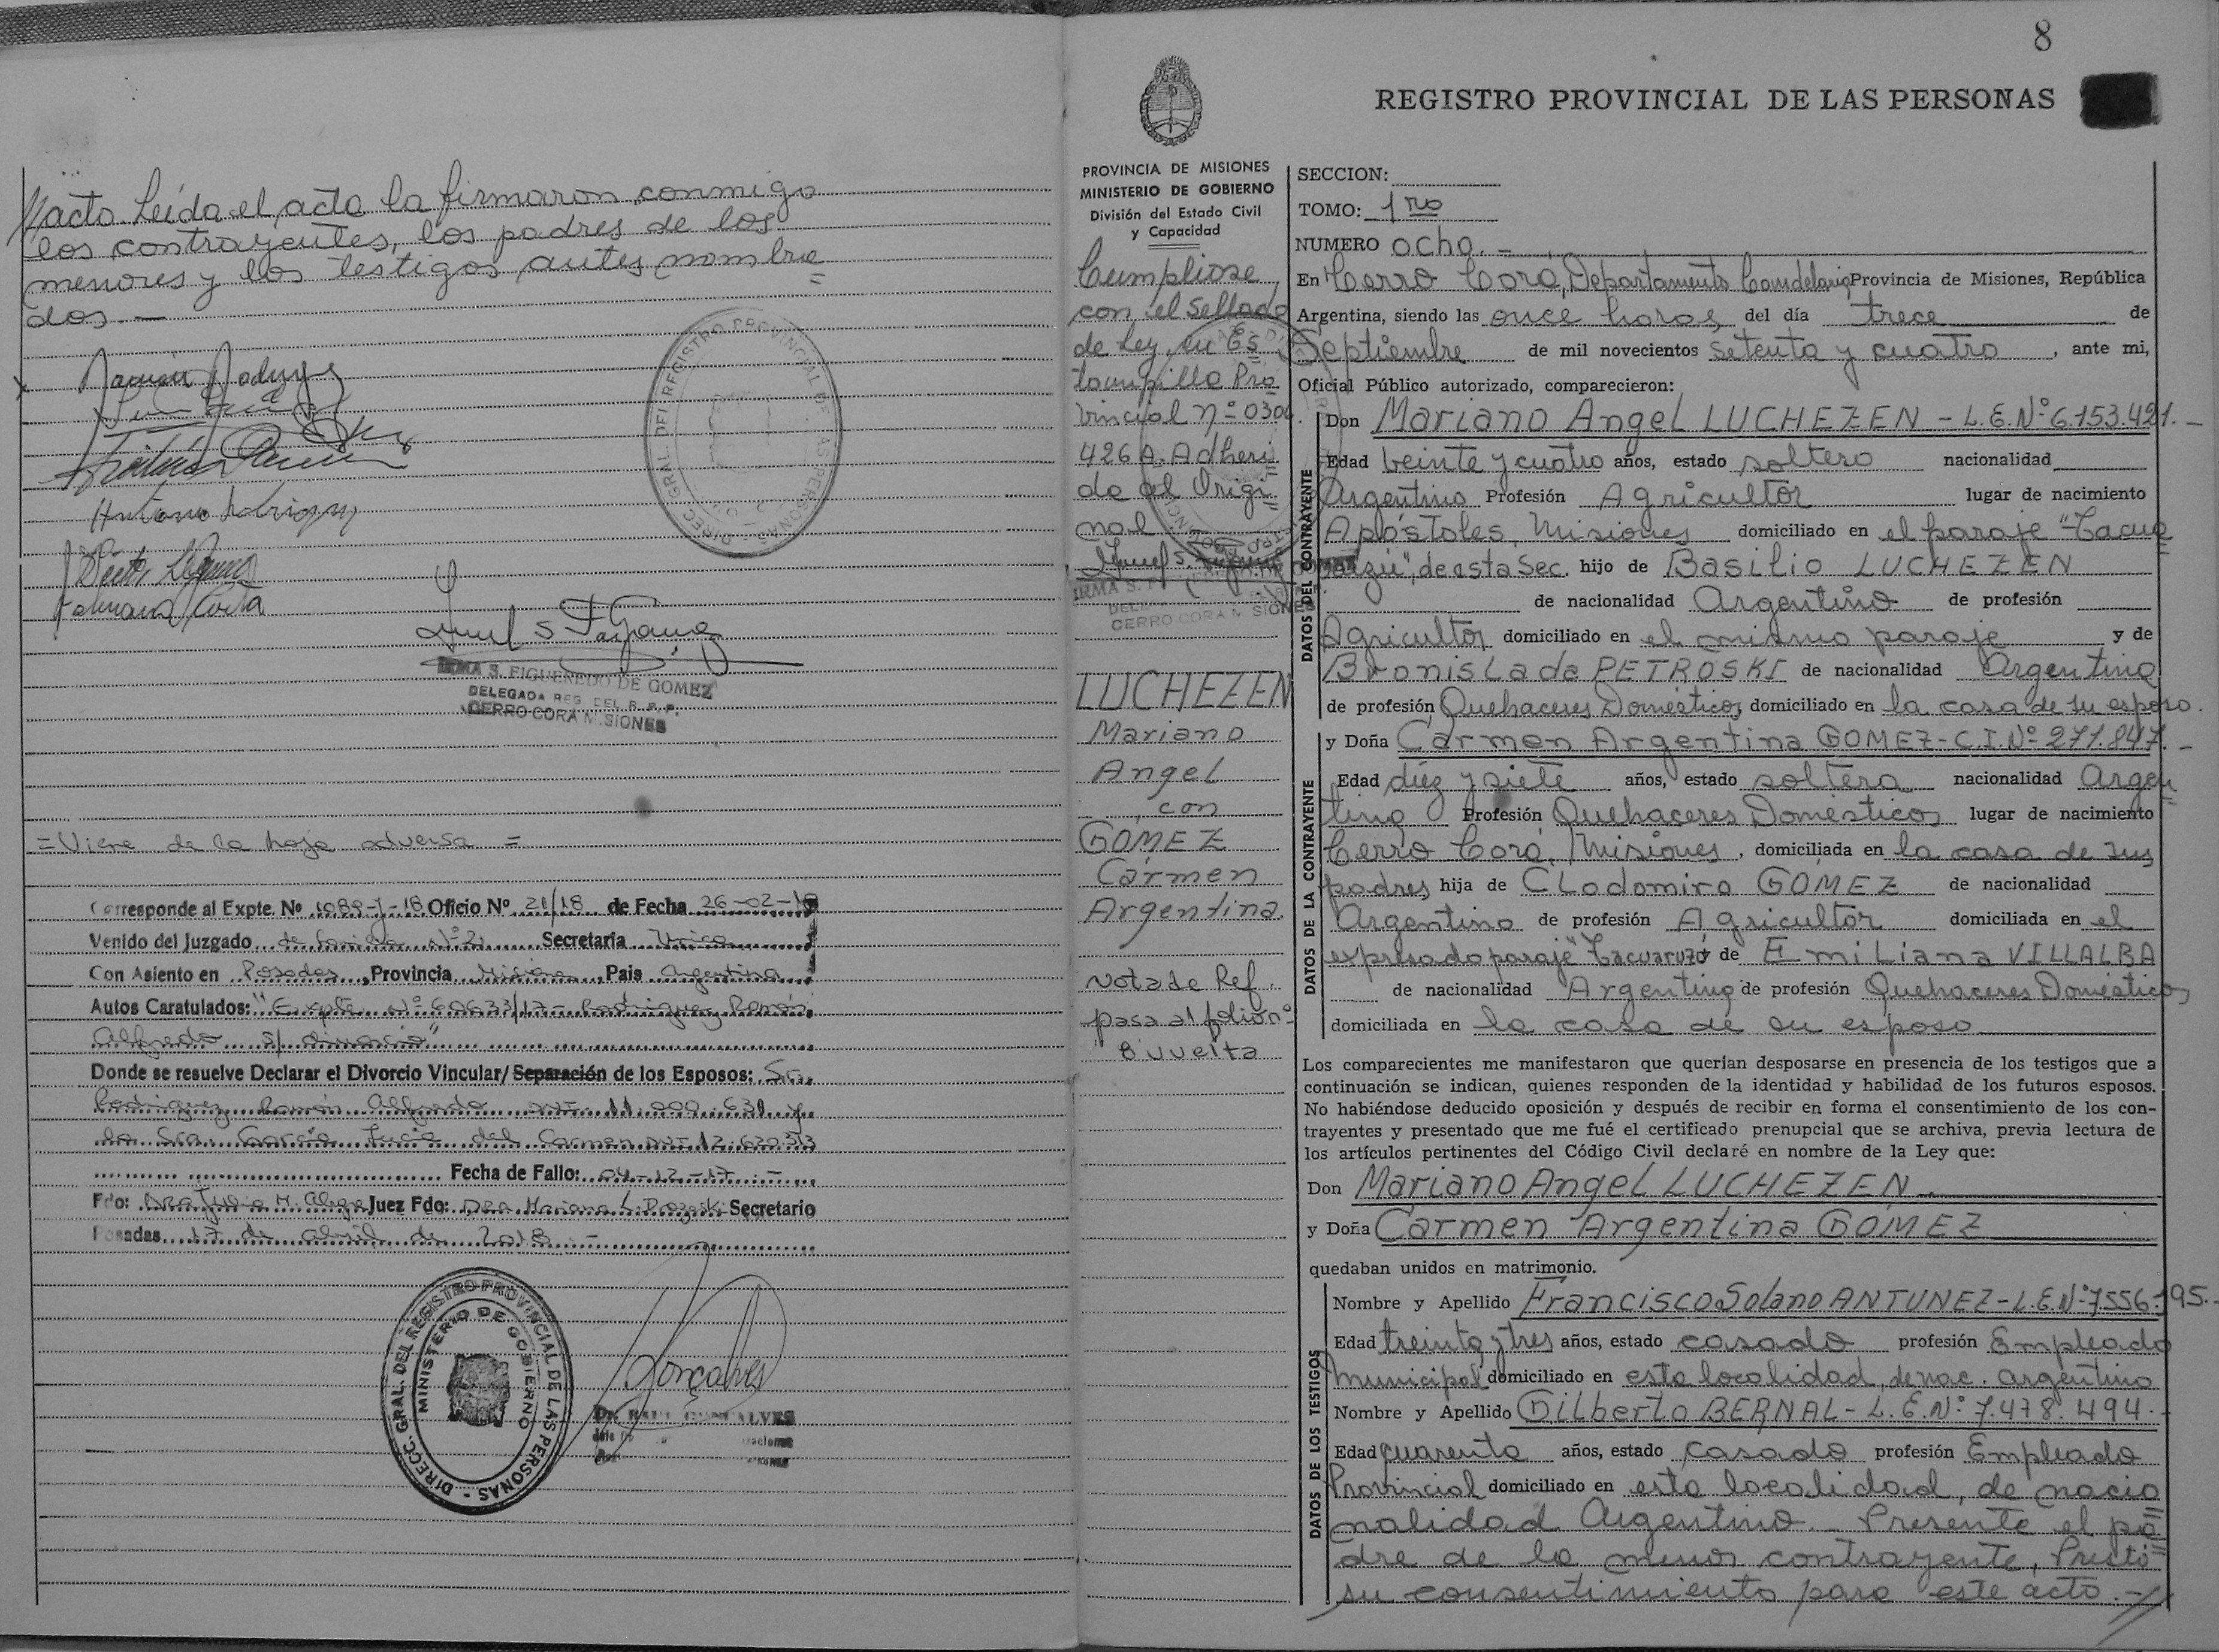 acto. Leída el acta la firmaron conmigo
los contrayentes, los padres de los
menores y los testigos antes nombra
dos.—
Antonio Rodriguez
DIREC. GRAL. DEL REGISTRO PROVINCIAL DE LAS PERSONAS
IRMA S. FIGUEREDO DE GOMEZ
DELEGADA REG. DEL R. P. P.
CERRO CORA MISIONES
=Viene de la hoja adversa =
Corresponde al Expte. Nº 1089-J-18 Oficio Nº 21/18 de Fecha 26-02-18
Venido del Juzgado de Familia Nº 2 Secretaria Unica
Con Asiento en Posadas, Provincia Misiones, Pais Argentina
Autos Caratulados: "Expte. Nº 60633/17- Rodriguez Ramón
Alfredo s/ divorcio"
Donde se resuelve Declarar el Divorcio Vincular/ Separación de los Esposos: Sr.
Rodriguez Ramón Alfredo DNI- 11.000.631 y
la Sra. Garcia Lucia del Carmen DNI- 12.630.513
Fecha de Fallo: 04-12-17.-
Fdo: DRA Julia H. Alegre Juez Fdo: DRA Mariana L. Secretario
Posadas 17 de abril de 2018.-
DIRECC. GRAL. DEL REGISTRO PROVINCIAL DE LAS PERSONAS -
MINISTERIO DE GOBIERNO
Gonçalves
Dr. RAUL GONCALVES
8
REGISTRO PROVINCIAL DE LAS PERSONAS
PROVINCIA DE MISIONES
MINISTERIO DE GOBIERNO
División del Estado Civil
y Capacidad
Cumpliose
con el Sellado
de Ley, en Es
tampilla Pro
vincial nº 0300
426 A. Adheri
da al Origi
nal
IRMA S.
CERRO CORA MISIONES
LUCHEZEN
Mariano
Angel
con
GOMEZ
Carmen
Argentina.
Nota de Ref.
pasa al folio nº
8 vuelta
SECCION:
TOMO: 1ro
NUMERO ocho.-
En Cerro Corá, Departamento Candelaria Provincia de Misiones, República
Argentina, siendo las once horas, del día trece de
Septiembre de mil novecientos setenta y cuatro, ante mi,
Oficial Público autorizado, comparecieron:
DATOS DEL CONTRAYENTE
Don Mariano Angel LUCHEZEN - L.E.Nº 6.153.421.-
Edad veinte y cuatro años, estado soltero nacionalidad
Argentino Profesión Agricultor lugar de nacimiento
Apóstoles, Misiones domiciliado en el paraje "Tacua
ruzú", de esta Sec. hijo de Basilio LUCHEZEN
de nacionalidad Argentino de profesión
Agricultor domiciliado en el mismo paraje y de
Bronislada PETROSKI de nacionalidad Argentina
de profesión Quehaceres Domésticos domiciliado en la casa de su esposo.
DATOS DE LA CONTRAYENTE
y Doña Carmen Argentina GOMEZ-C.I.Nº 271.847.-
Edad diez y siete años, estado soltera nacionalidad Argen
tina Profesión Quehaceres Domésticos lugar de nacimiento
Cerro Corá, Misiones, domiciliada en la casa de sus
padres, hija de Clodomiro GOMEZ de nacionalidad
Argentino de profesión Agricultor domiciliado en el
expresado paraje "Tacuaruzú y de Emiliana VILLALBA
de nacionalidad Argentina de profesión Quehaceres Domésticos
domiciliada en la casa de su esposo
Los comparecientes me manifestaron que querían desposarse en presencia de los testigos que a
continuación se indican, quienes responden de la identidad y habilidad de los futuros esposos.
No habiéndose deducido oposición y después de recibir en forma el consentimiento de los con-
trayentes y presentado que me fué el certificado prenupcial que se archiva, previa lectura de
los artículos pertinentes del Código Civil declaré en nombre de la Ley que:
Don Mariano Angel LUCHEZEN.
y Doña Carmen Argentina GOMEZ
quedaban unidos en matrimonio.
DATOS DE LOS TESTIGOS
Nombre y Apellido Francisco Solano ANTUNEZ-L.E.Nº 7.556.195.-
Edad treinta y tres años, estado casado profesión Empleado
Municipal domiciliado en esta localidad, de nac. argentino
Nombre y Apellido Gilberto BERNAL - L.E.Nº 7.478.494.-
Edad cuarenta años, estado casado profesión Empleado
Provincial domiciliado en esta localidad, de nacio
nalidad Argentino. Presente el pa
dre de la menor contrayente, Prestó
su consentimiento para este acto.-//